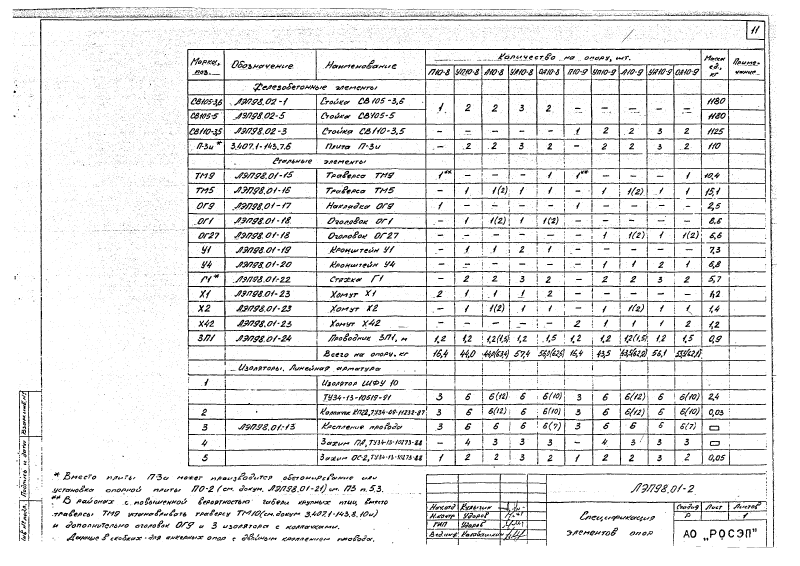 11
Марка, поз. Обозначение Наименование Количество на опору, шт. Масса ед., кг Приме-чание
П10-8 УП10-8 Л10-8 УЛ10-8 ОЛ10-8 П10-9 УП10-9 Л10-9 УЛ10-9 ОЛ10-9
Железобетонные элементы
СВ105-3,6 ЛЭП98.02-1 Стойка СВ105-3,6 1 2 2 3 2 – – – – – 1180
СВ105-5 ЛЭП98.02-5 Стойка СВ105-5 1180
СВ110-3,5 ЛЭП98.02-3 Стойка СВ110-3,5 – – – – – 1 2 2 3 2 1125
П-3и* 3.407.1-143.7.6 Плита П-3и – 2 2 3 2 – 2 2 3 2 110
Стальные элементы
ТМ9 ЛЭП98.01-15 Траверса ТМ9 1** – – – 1 1** – – – 1 10,4
ТМ5 ЛЭП98.01-16 Траверса ТМ5 – 1 1(2) 1 1 – 1 1(2) 1 1 15,1
ОГ9 ЛЭП98.01-17 Накладка ОГ9 1 – – – – 1 – – – – 2,5
ОГ1 ЛЭП98.01-18 Оголовок ОГ1 – 1 1(2) 1 1(2) – – – – –
ОГ27 ЛЭП98.01-18 Оголовок ОГ27 – – – – – – 1 1(2) 1 1(2) 6,6
У1 ЛЭП98.01-19 Кронштейн У1 – 1 1 2 1 – – – – – 7,3
У4 ЛЭП98.01-20 Кронштейн У4 – – – – – – 1 1 2 1 6,8
Г1* ЛЭП98.01-22 Стяжка Г1 – 2 2 3 2 – 2 2 3 2 5,7
Х1 ЛЭП98.01-23 Хомут Х1 2 1 1 1 2 – – – – –
Х2 ЛЭП98.01-23 Хомут Х2 – 1 1(2) 1 1 – 1 1(2) 1 1 1,4
Х42 ЛЭП98.01-23 Хомут Х42 – – – – – 2 1 1 1 2 1,2
ЗП1 ЛЭП98.01-24 Проводник ЗП1, м 1,2 1,2 1,2(1,5) 1,2 1,5 1,2 1,2 1,2(1,5) 1,2 1,5 0,9
Всего на опору, кг 16,4 44,0 57,4 16,4 43,5 56,1
Изоляторы. Линейная арматура
1 Изолятор ШФУ 10
ТУ34-13-10619-91 3 6 6(12) 6 6(10) 3 6 6(12) 6 6(10) 2,4
2 Колпачок КП22, ТУ34-09-11232-87 3 6 6(12) 6 6(10) 3 6 6(12) 6 6(10) 0,03
3 ЛЭП98.01-13 Крепление провода 3 6 6 6 6(7) 3 6 6 6 6(7)
4 Зажим ПА, ТУ34-13-10273-88 – 4 3 3 3 – 4 3 3 3
5 Зажим ОС-2, ТУ34-13-10273-88 1 2 2 3 2 1 2 2 3 2 0,05
* Вместо плиты П-3и может производится обетонирование или
установка опорной плиты ПО-2 (см. докум. ЛЭП98.01-21) см. ПЗ п.5.3.
** В районах с повышенной вероятностью гибели крупных птиц, вместо
траверсы ТМ9 устанавливать траверсу ТМ10 (см. докум 3.407.1-143.8.10и)
и дополнительно оголовок ОГ9 и 3 изолятора с колпачками.
Данные в скобках для анкерных опор с двойным креплением провода.
ЛЭП98.01-2
Нач.отд Кулыгин
Н.контр Ударов
ГИП Ударов
Вед.инж
Спецификация элементов опор
Стадия Лист Листов
Р
АО „РОСЭП"
Взам.инв.№
Подпись и дата
Инв.№ подл.